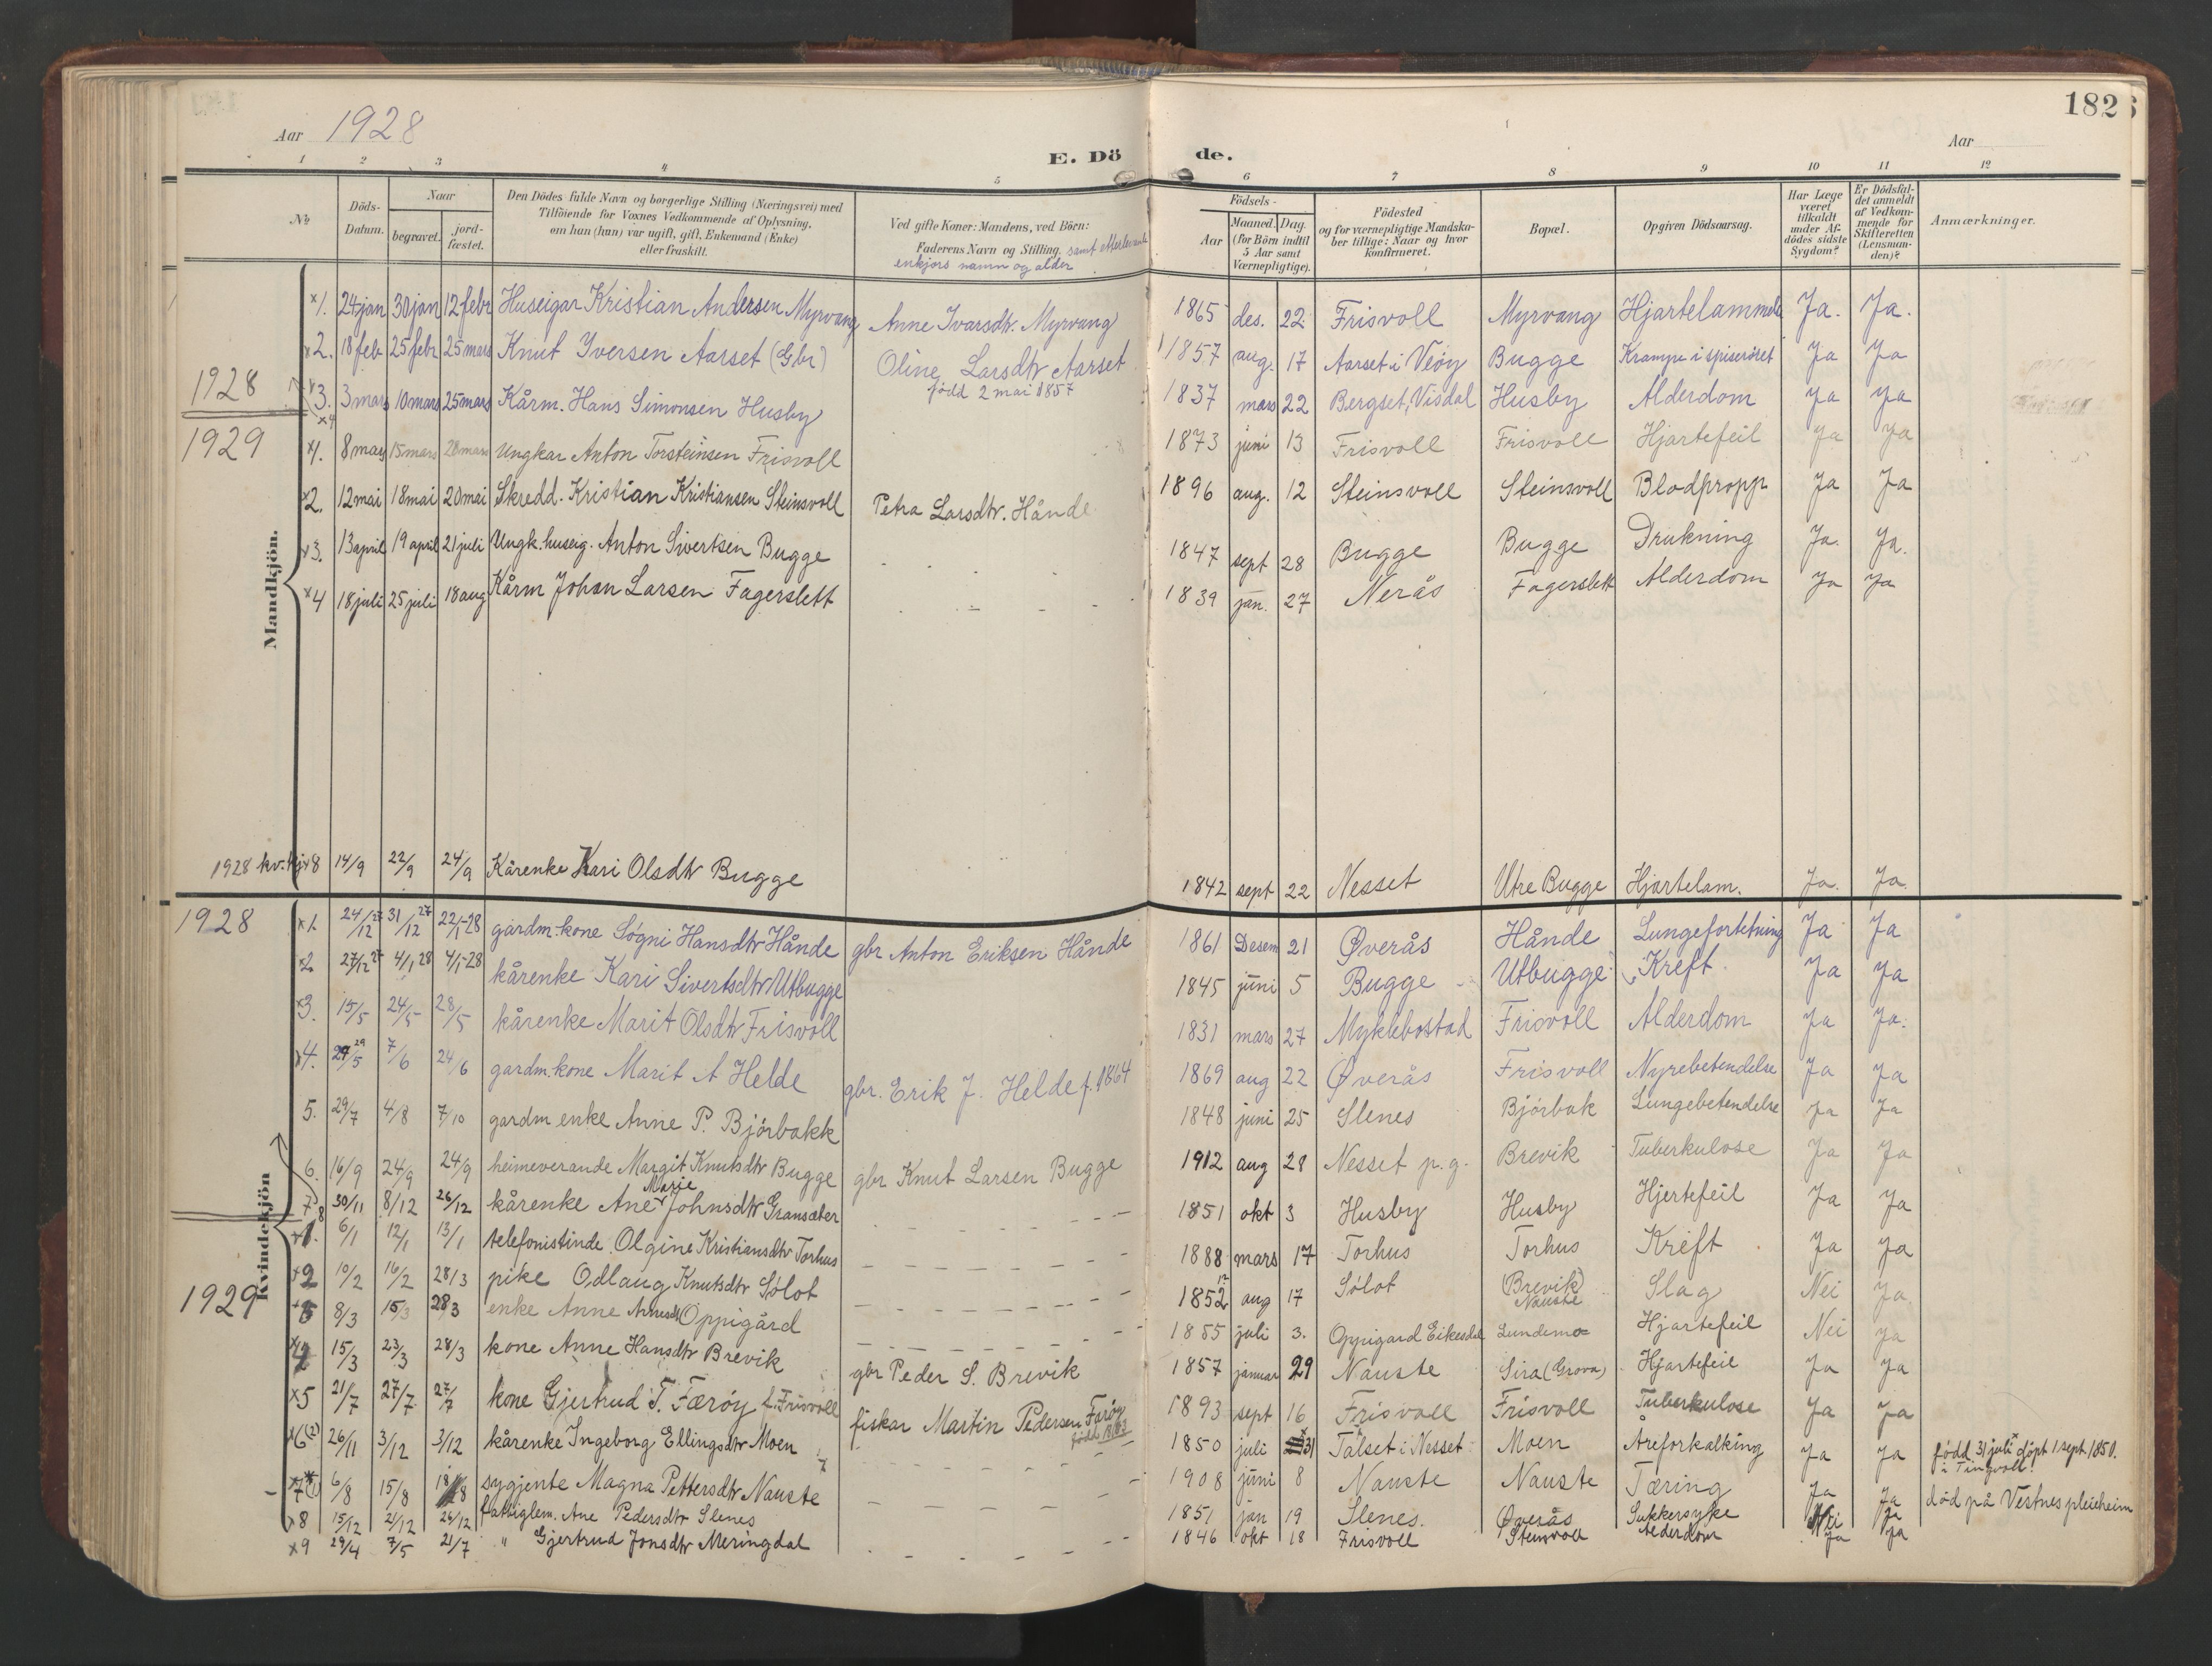 182
Aar 1928
Aar
E. Dö de.
1 2 3 4 5 6 7 8 9 10 11 12
№
Döds-Datum.
Naar
begravet.
jord-fæstet.
Den Dödes fulde Navn og borgerlige Stilling (Næringsvei) med
Tilföiende for Voxnes Vedkommende af Oplysning,
om han (hun) var ugift, gift, Enkemand (Enke)
eller fraskilt.
Ved gifte Koner: Mandens, ved Börn:
Faderens Navn og Stilling. samt
enkjors namn og alder
Födsels-
Aar
Maaned. Dag.
(for Börn indtil
5 Aar samt
Værnepligtige).
Födested
og for værnepligtige Mandska-
ber tillige: Naar og hvor
Konfirmeret.
Bopæl.
Opgiven Dödsaarsag.
Har Læge
været
tilkaldt
under Af-
dödes sidste
Sygdom?
Er Dödsfal-
det anmeldt
af Vedkom-
mende for
Skifteretten
(Lensman-
den)?
Anmærkninger.
Mandkjön.
x1. 24 jan 30 jan 12 febr Huseigar Kristian Andersen Myrvang Anne Ivarsdtr. Myrvang 1865 des. 22 Frisvoll Myrvang Hjartelammels Ja. Ja.
x2. 18 feb 25 febr 25 mars Knut Iversen Aarset (Gbr) Oline Larsdtr Aarset 1857 aug. 17 Aarset i Veöy Bugge Krampe i spiseröret Ja Ja
født 2 mai 1857
1928 x3. 3 mars 10 mars 25 mars Kårm. Hans Simonsen Husby 1837 mars 22 Bergset, Visdal Husby Alderdom Ja Ja
x4
1929 x1. 8 mars 15 mars 28 mars Ungkar Anton Torsteinsen Frisvoll 1873 juni 13 Frisvoll Frisvoll Hjartefeil Ja Ja
x2. 12 mai 18 mai 20 mai Skredd. Kristian Kristiansen Steinsvoll Petra Larsdtr. Hånde 1896 aug. 12 Steinsvoll Steinsvoll Blodpropp Ja Ja
x3. 13 april 19 april 21 juli Ungk. huseig. Anton Sivertsen Bugge - - - - 1847 sept 28 Bugge Bugge Drukning Ja. Ja.
x4 18 juli 25 juli 18 aug Kårm Johan Larsen Fagerslett - - - - 1839 jan. 27 Nerås Fagerslett Alderdom Ja Ja
1928 kv.kj. x8 14/9 22/9 24/9 Kårenke Kari Olsdtr Bugge 1842 sept 22 Nesset Utre Bugge Hjartelam. Ja. Ja.
Kvindekjön
1928 x1. 24/12 27 31/12 27 22/1-28 gardm.kone Sógni Hansdtr Hånde gbr Anton Eriksen Hånde 1861 Desem 21 Øverås Hånde Lungefortetning Ja Ja
x2 27/12 27 4/1 28 4/1-28 kårenke Kari Sivertsdtr Utbugge 1845 juni 5 Bugge Utbugge Kreft. Ja Ja
x3. 15/5 24/5 28/5 kårenke Marit Olsdtr Frisvoll 1831 mars 27 Myklebostad Frisvoll Alderdom Ja Ja.
x4. 29/5 7/6 24/6 gardm.kone Marit A Helde gbr. Erik J. Helde f. 1864 1869 aug 22 Øverås Frisvoll Nyrebetendelse Ja Ja
5. 29/7 4/8 7/10 gardm enke Anne P. Bjórbakk 1848 juni 25 Slenes Bjórbak Lungebetendelse Ja Ja
6. 16/9 24/9 24/9 heimeverande Margit Knutsdtr Bugge gbr Knut Larsen Bugge 1912 aug 28 Nesset p.g. Brevik Tuberkulose Ja Ja
7. 8 30/11 8/12 26/12 kårenke Ane Marie Johnsdtr Gransæter - - - - 1851 okt 3 Husby Husby Hjertefeil Ja Ja
1929 x1. 6/1 12/1 13/1 telefonistinde Olgine Kristiansdtr Torhus - - - - 1888 mars 17 Torhus Torhus Kreft. Ja Ja
x2 10/2 16/2 28/3 pike Odlaug Knutsdtr Sólot - - - - 1852 12 aug 17 Sólot (Brevik) Nauste Slag Nei Ja
x3 8/3 15/3 28/3 enke Anne Arnesdtr Oppigård - - - - 1855 juli 3. Oppigard Eikesdal Lundemo Hjartefeil Nei Ja
x4 15/3 23/3 28/3 kone Anne Hansdtr Brevik gbr Peder S. Brevik 1857 januar 29 Nauste Sira (Grova) Hjartefeil Ja Ja
x5 21/7 27/7 27/7 kone Gjertrud T. Færöy f. Frisvoll fiskar Martin Pedersen Faröy født 1893 1893 sept 16 Frisvoll Frisvoll Tuberkulose Ja Ja
x6 (2) 26/11 3/12 3/12 kårenke Ingeborg Ellingsdtr Moen - - - - 1850 juli 31 Talset i Nesset Moen Åreforkalking Ja Ja född 31 juli döpt 1 sept. 1850.
i Tingvoll.
x7 (1) 6/8 15/8 18/8 sygjente Magna Pettersdtr Nauste - - - - 1908 juni 8 Nauste Nauste Tæring Ja Ja död på Vestnes pleieheim
x8 15/12 21/12 26/12 fattiglem. Ane Pedersdtr Slenes 1851 jan 19 Slenes. Øverås Sukkersyke Nei Ja
x9 29/4 7/5 21/7 " Gjertrud Jonsdtr Meringdal - - - - 1846 okt 18 Frisvoll Steinsvoll Alderdom Ja Ja